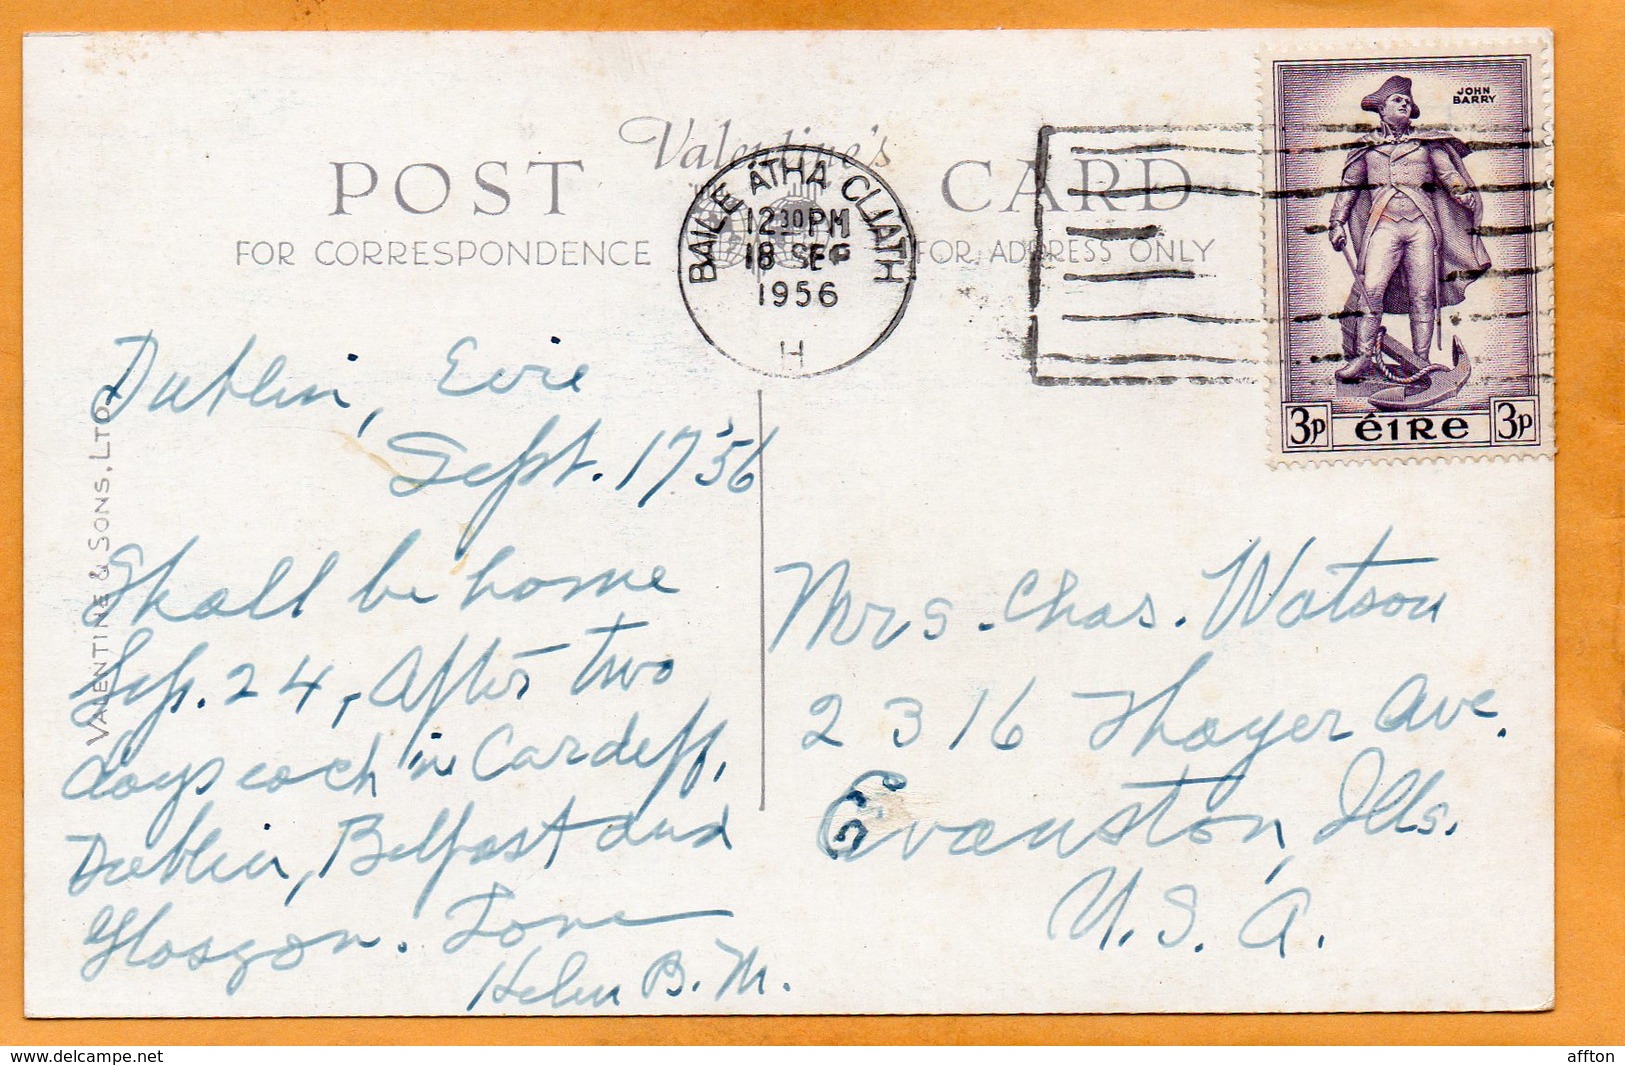 Valentine's
POST CARD
FOR CORRESPONDENCE FOR ADDRESS ONLY
BAILE ÁTHA CLIATH
12 30 PM
18 SEP
1956
H
JOHN
BARRY
3p éire 3p
VALENTINE & SONS. LTD.
Dublin, Eire
Sept. 17 '56
Shall be home
Sep. 24, after two
days each in Cardeff,
Dublin, Belfast and
Glasgow. Love
Helen B. M.
Mrs. Chas. Watson
2316 Thayer Ave.
Evanston, Ills.
U. S. A.
www.delcampe.net
affton